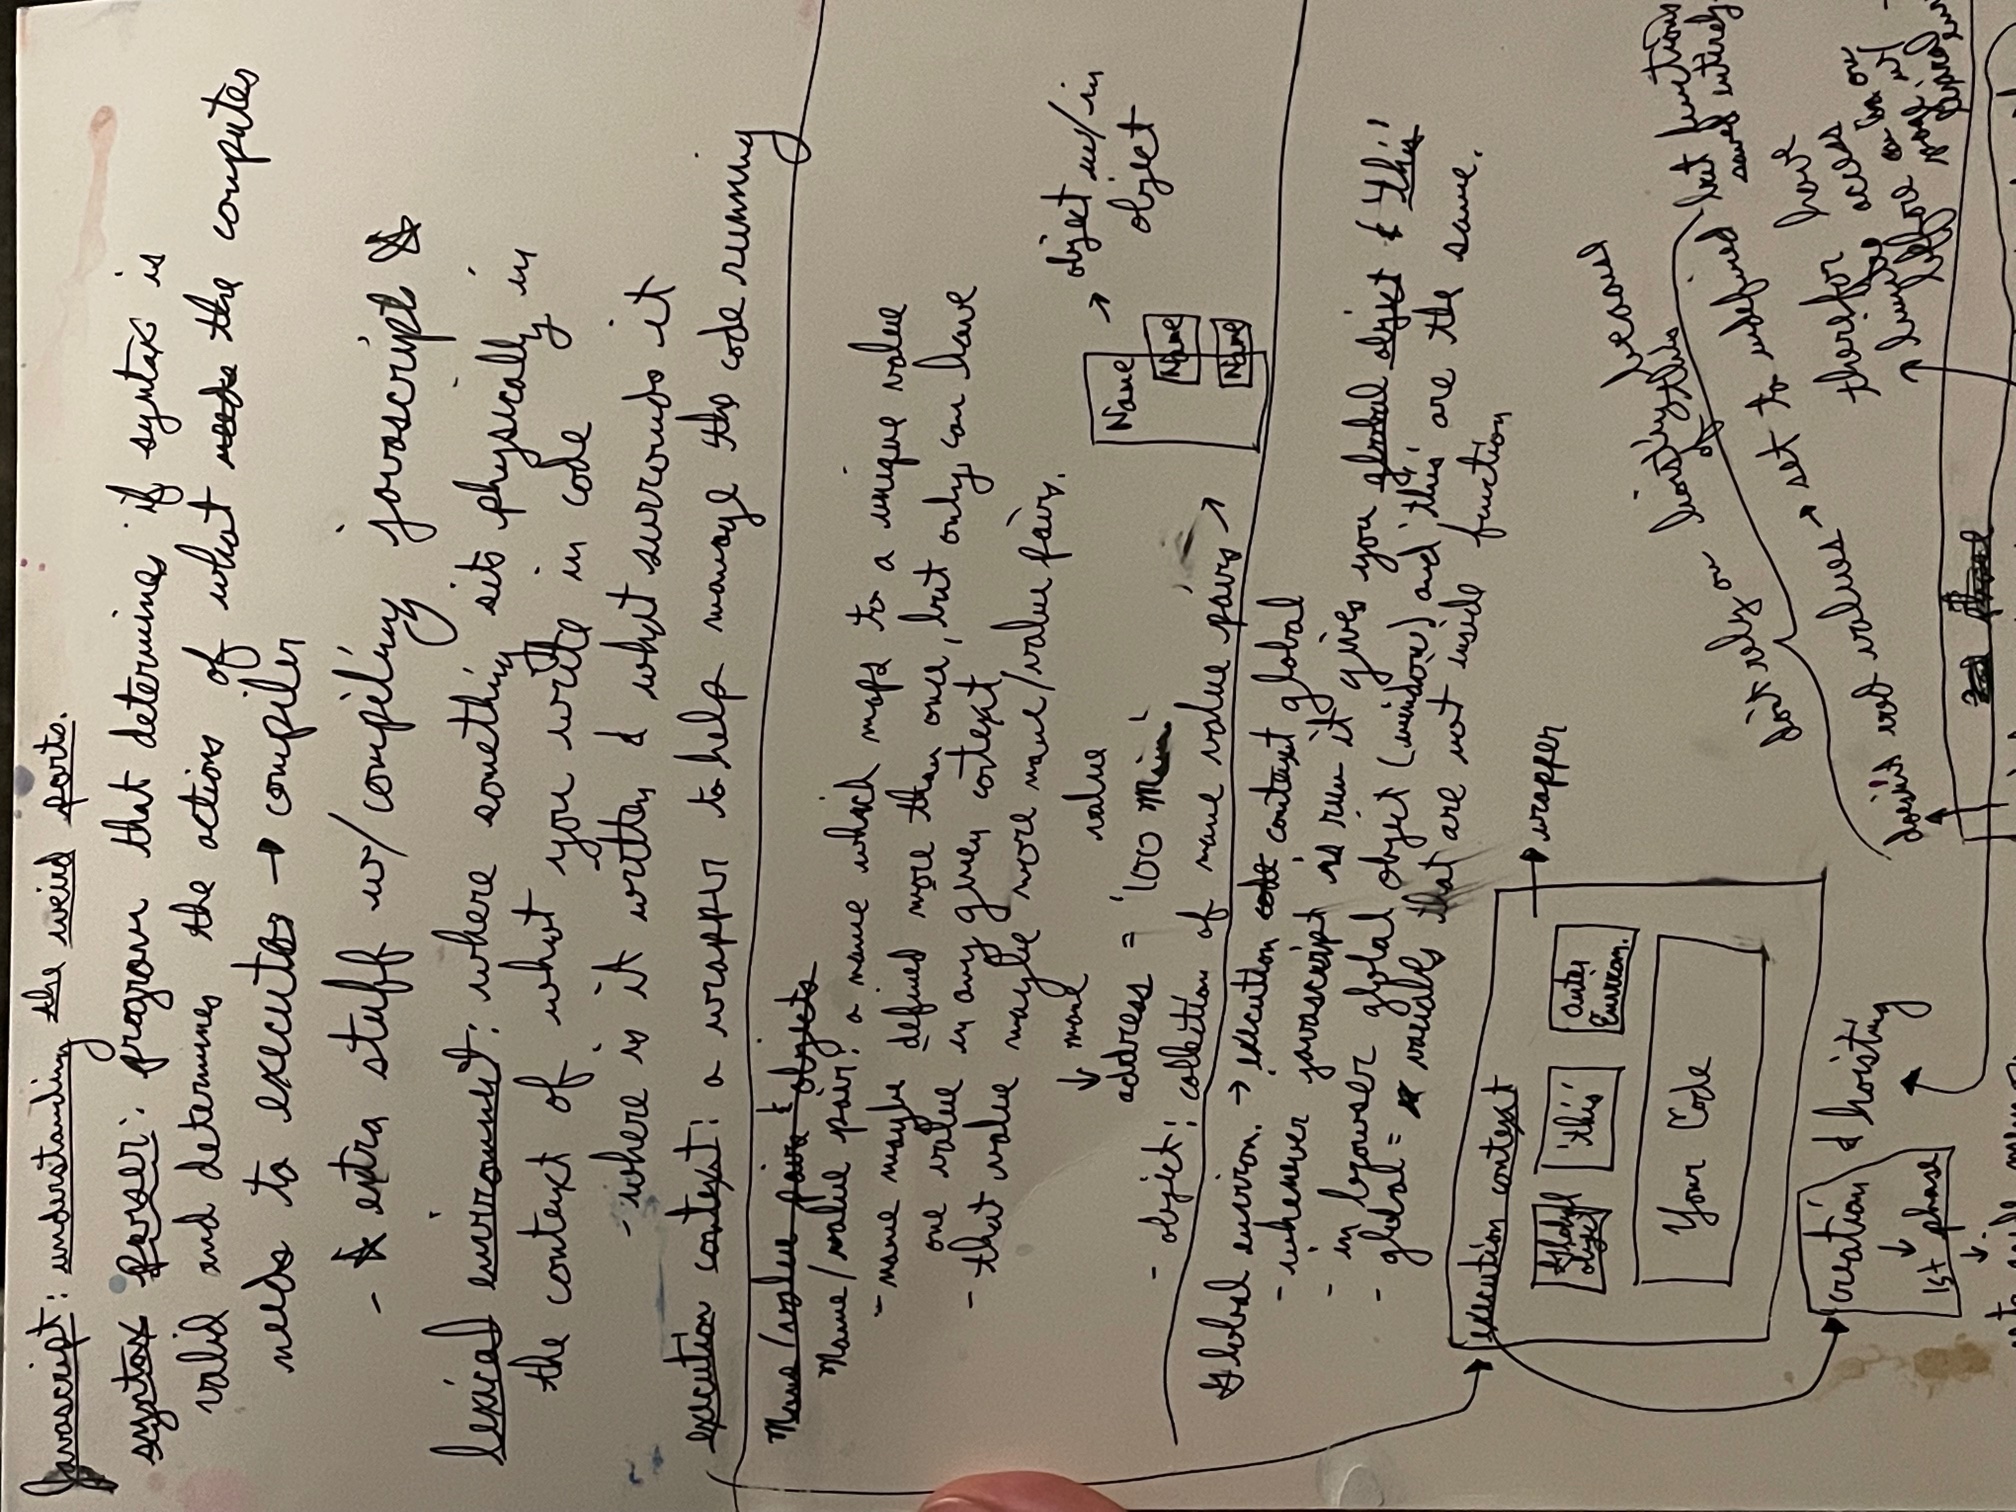 Javascript: understanding the weird parts.
syntax parser: program that determines if syntax is
valid and determines the actions of what needs the computer
needs to execute → compiler
- ☆ extra stuff w/ compiling javascript ☆
lexical environment: where something sits physically in
the context of what you write in code
- where is it written & what surrounds it
execution context: a wrapper to help manage the code running
Name/value pairs & objects
Name/value pair: a name which maps to a unique value
- name maybe defined more than once, but only can have
one value in any given context
- that value maybe more name/value pairs.
↓ name value
address = '100 Main'
- object: collection of name value pairs →
Name
Name
Name
→ object w/in
object
Global environ. → execution code context global
- whenever javascript is run it gives you global object & 'this'
- in browser global object (window) and 'this' are the same.
- global = variables that are not inside function
execution context
Global
object
'this'
outer
Environ.
Your Code
→ wrapper
don't rely on hoisting because
of this
doesn't values → set to undefined but functions
saved entirely
therefor have
limited access
before on
page w/
lexical
creation & hoisting
↓
1st phase
↓
2nd phase